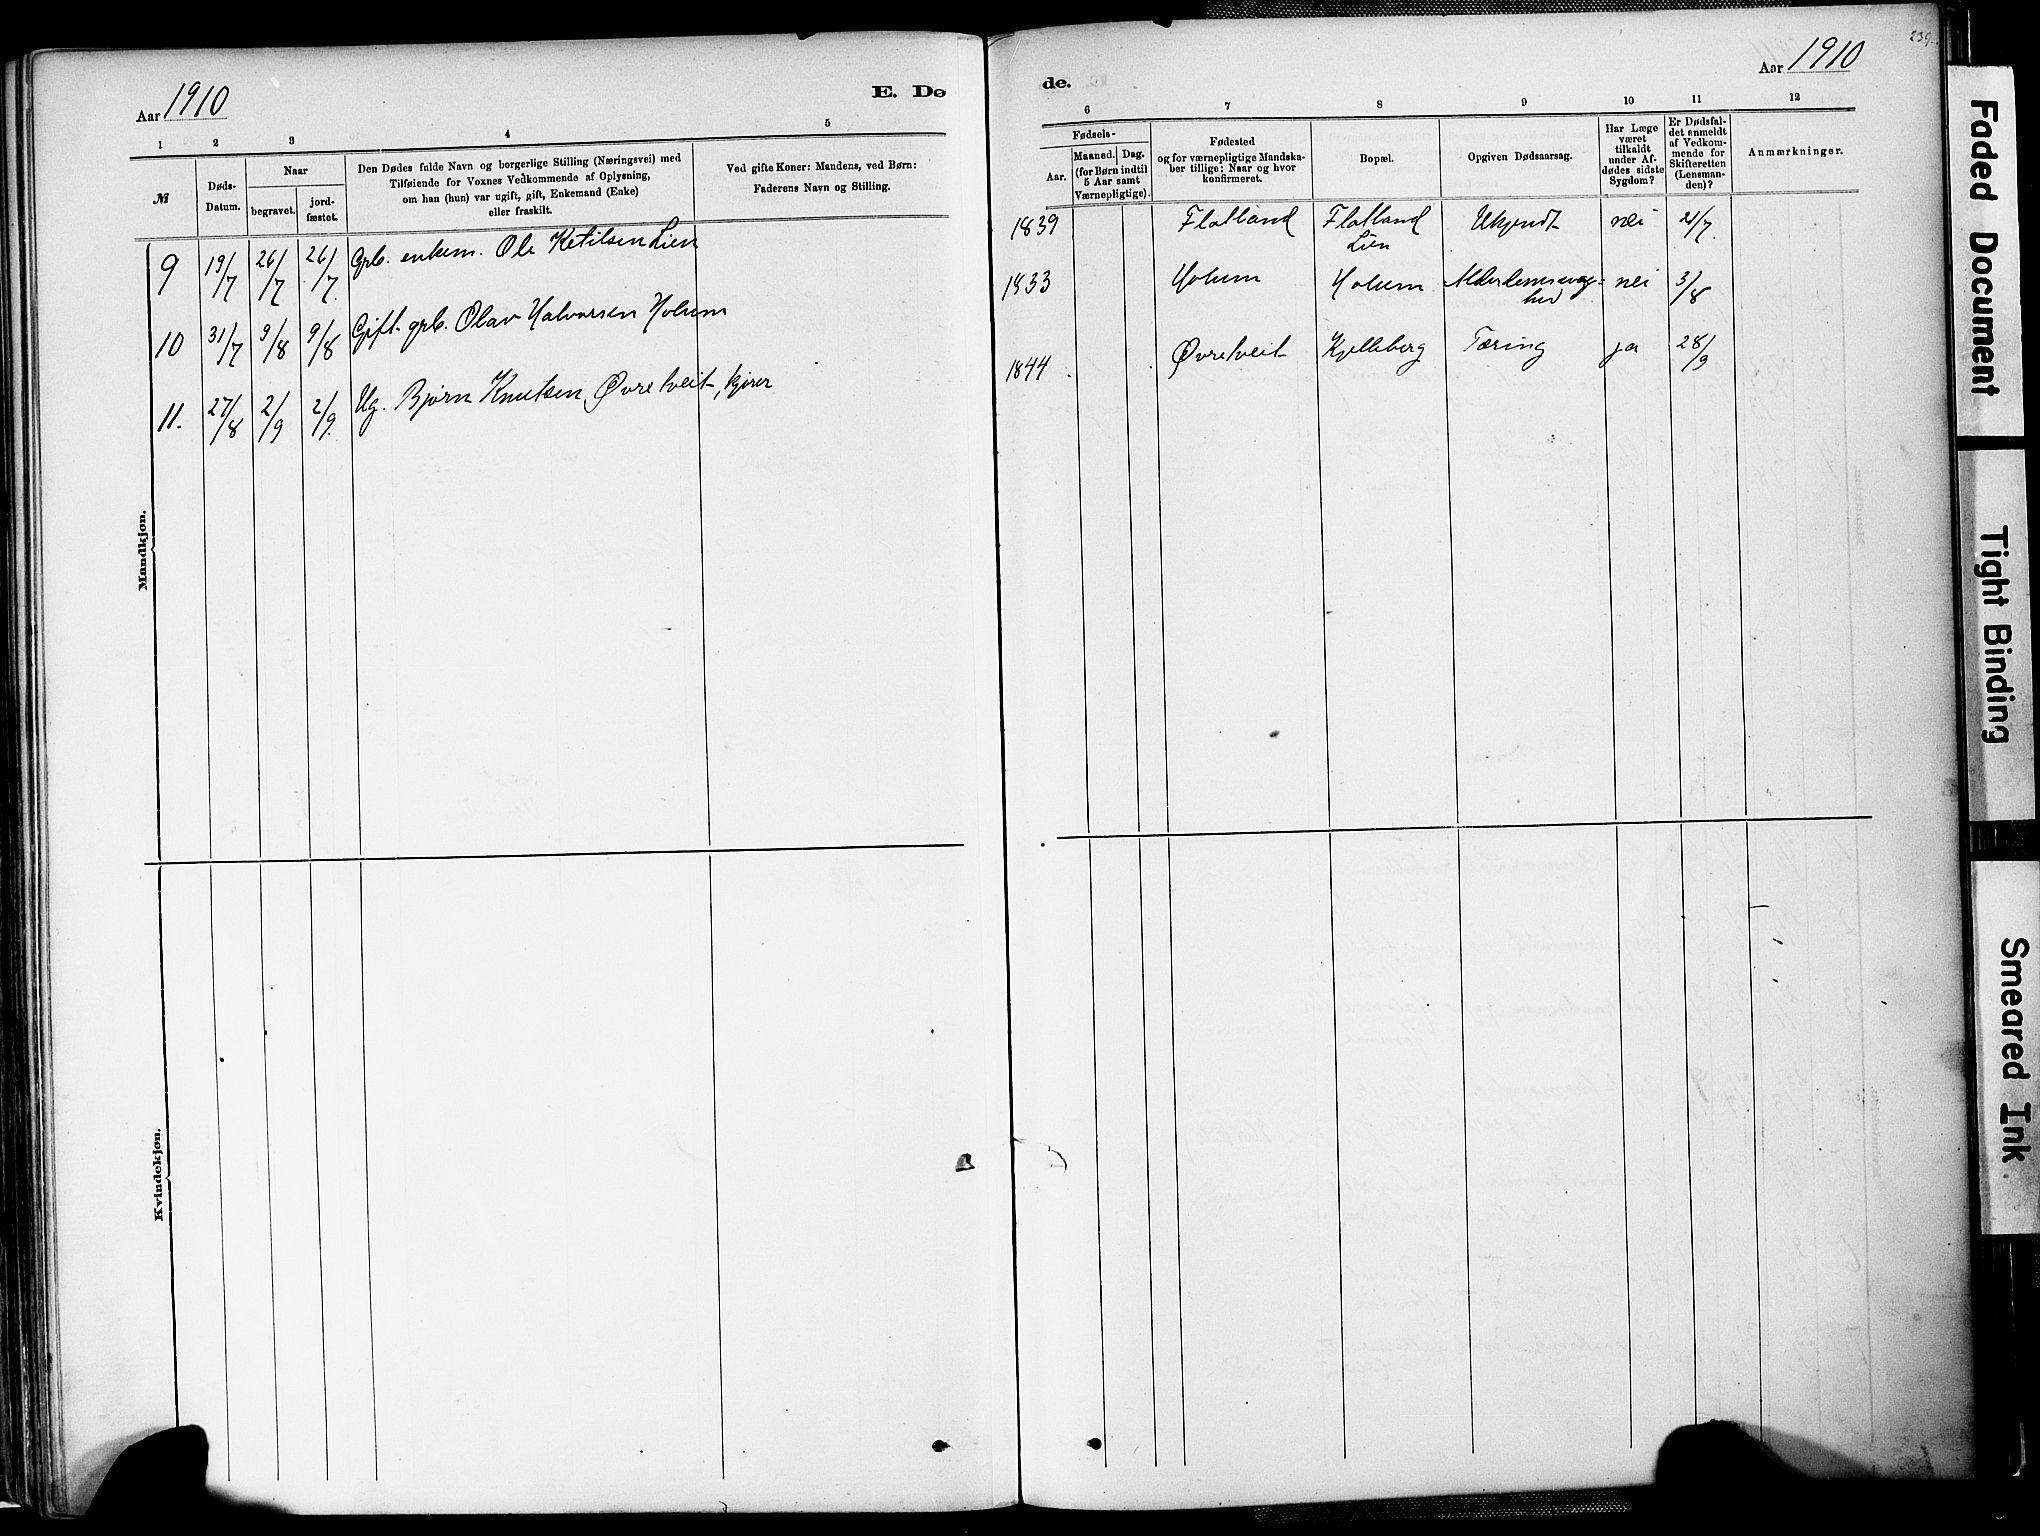 Aar 1910
E. Dø
1 2 3 4 5
№
Døds-
Datum.
Naar
begravet.
jord-
fæstet.
Den Dødes fulde Navn og borgerlige Stilling (Næringsvei) med
Tilføiende for Voxnes Vedkommende af Oplysning,
om han (hun) var ugift, gift, Enkemand (Enke)
eller fraskilt.
Ved gifte Koner: Mandens, ved Børn:
Faderens Navn og Stilling.
9 19/7 26/7 26/7 Gрb. enkem. Ole Ketilsen Lien
10 31/7 9/8 9/8 Gift gрb. Olav Halvorsen Holum
11. 27/8 2/9 2/9. Ug. Bjørn Knutsen Øvretveit, kjører
Mandkjøn.
Kvindekjøn.
239.
de.
Aar 1910
6 7 8 9 10 11 12
Fødsels-
Aar.
Maaned. Dag.
(for Børn indtil
5 Aar samt
Værnepligtige).
Fødested
og for værnepligtige Mandska-
ber tillige: Naar og hvor
konfirmeret.
Bopæl.
Opgiven Dødsaarsag.
Har Læge
været
tilkaldt
under Af-
dødes sidste
Sygdom?
Er Dødsfal-
det anmeldt
af Vedkom-
mende for
Skifteretten
(Lensman-
den)?
Anmærkninger.
1839 Flatland Flatland Ukjendt nei 21/7
Lien
1833 Holum Holum Alderdomssvag- nei 3/8
hed
1844 Øvretveit Kjelleberg Tæring ja 28/9
Faded Document
Tight Binding
Smeared Ink